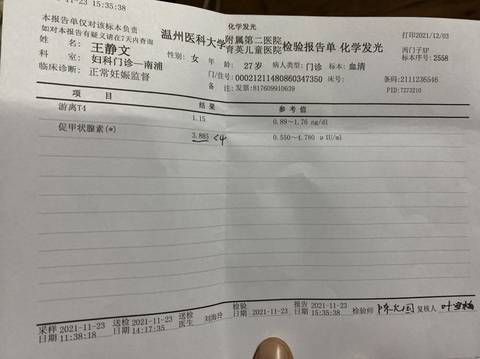 化学发光
-11-23 15:35:38
本报告单仅对该标本负责
如对本报告有疑义请在7天内查询
温州医科大学附属第二医院
育英儿童医院
检验报告单 化学发光
打印2021/12/03
西门子XP
姓名: 王静文
性别: 女 年龄: 27 岁 病人类型: 门诊 标本: 血清
标本序号: 2558
科室: 妇科门诊—南浦
门/住号: 00021211480860347350 床号:
条码: 2111236546
临床诊断: 正常妊娠监督
备注: 发票: 817609910639
PID: 7273210
项目 结果 参考值
游离T4 1.15 0.89-1.76 ng/dl
促甲状腺素(*) 3.885 <4 0.550-4.780 μIU/ml
采样 2021-11-23 送检 2021-11-23 送检 刘海玲 检验 2021-11-23 报告 2021-11-23 检验师 复核人
日期 11:38:18 日期 14:17:35 医生 日期 日期 15:35:38